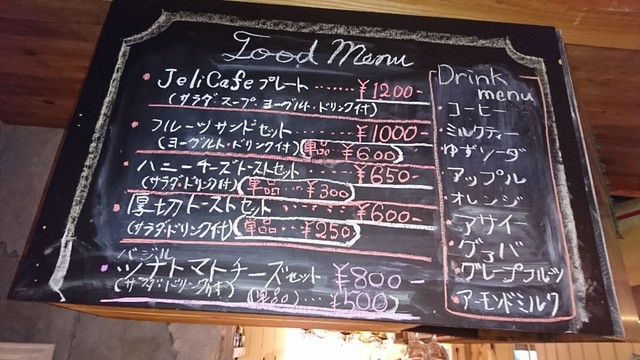 Food Menu
JeliCafeプレート……¥1200-
(サラダ・スープ・ヨーグルト・ドリンク付)
フルーツサンドセット……¥1000-
(ヨーグルト・ドリンク付) 単品…¥600-
ハニーチーズトーストセット…¥650-
(サラダ・ドリンク付) 単品…¥300-
厚切トーストセット……¥600-
(サラダ・ドリンク付) 単品…¥250-
バジル
ツナトマトチーズセット ¥800-
(サラダ・ドリンク付) (単品)…¥500-
Drink
menu
・コーヒー
・ミルクティー
・ゆずソーダ
・アップル
・オレンジ
・アサイー
・グァバ
・グレープフルーツ
・アーモンドミルク